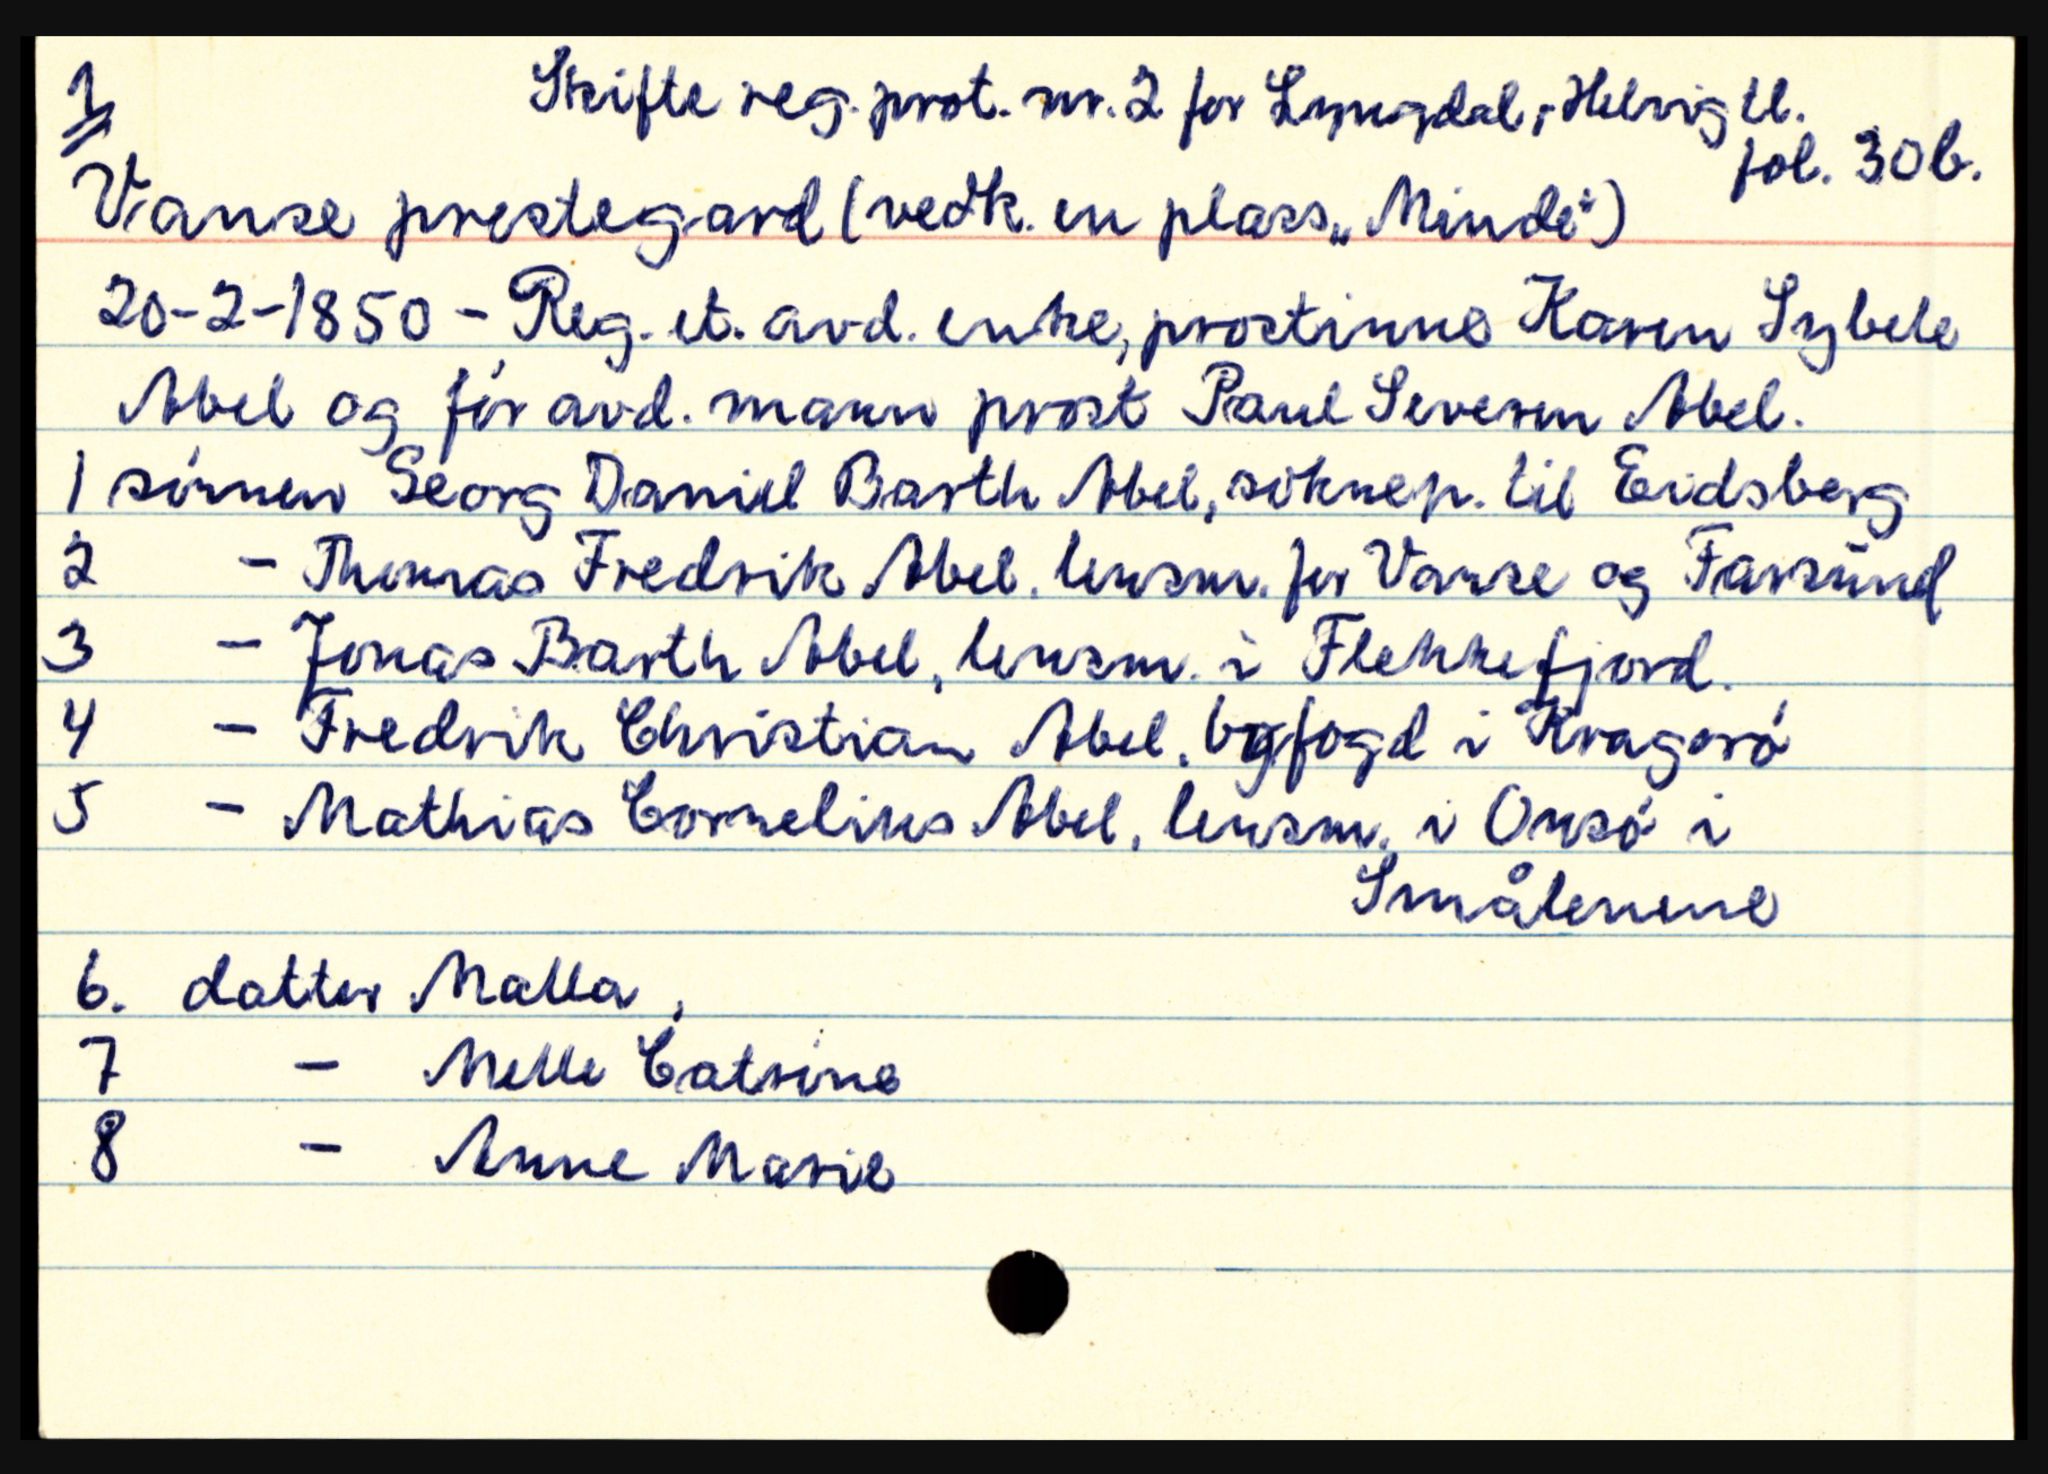 1
Skifte reg. prot. nr. 2 for Lyngdal, Helvig tl.
fol. 30b.
Vanse prestegard (vedk. en plass „Minde“)
20-2-1850 - Reg. et. avd. enke, prostinne Karen Sybele
Abel og før avd. mann prost Paul Severin Abel.
1 sønnen Georg Daniel Barth Abel, soknep. til Eidsberg
2 - Thomas Fredrik Abel, lensm. for Vanse og Farsund
3 - Jonas Barth Abel, lensm. i Flekkefjord.
4 - Fredrik Christian Abel, byfogd i Kragerø
5 - Mathias Cornelius Abel, lensm. i Onsø i
Smålenene
6. datter Malla,
7 - Melle Catrine
8 - Anne Marie